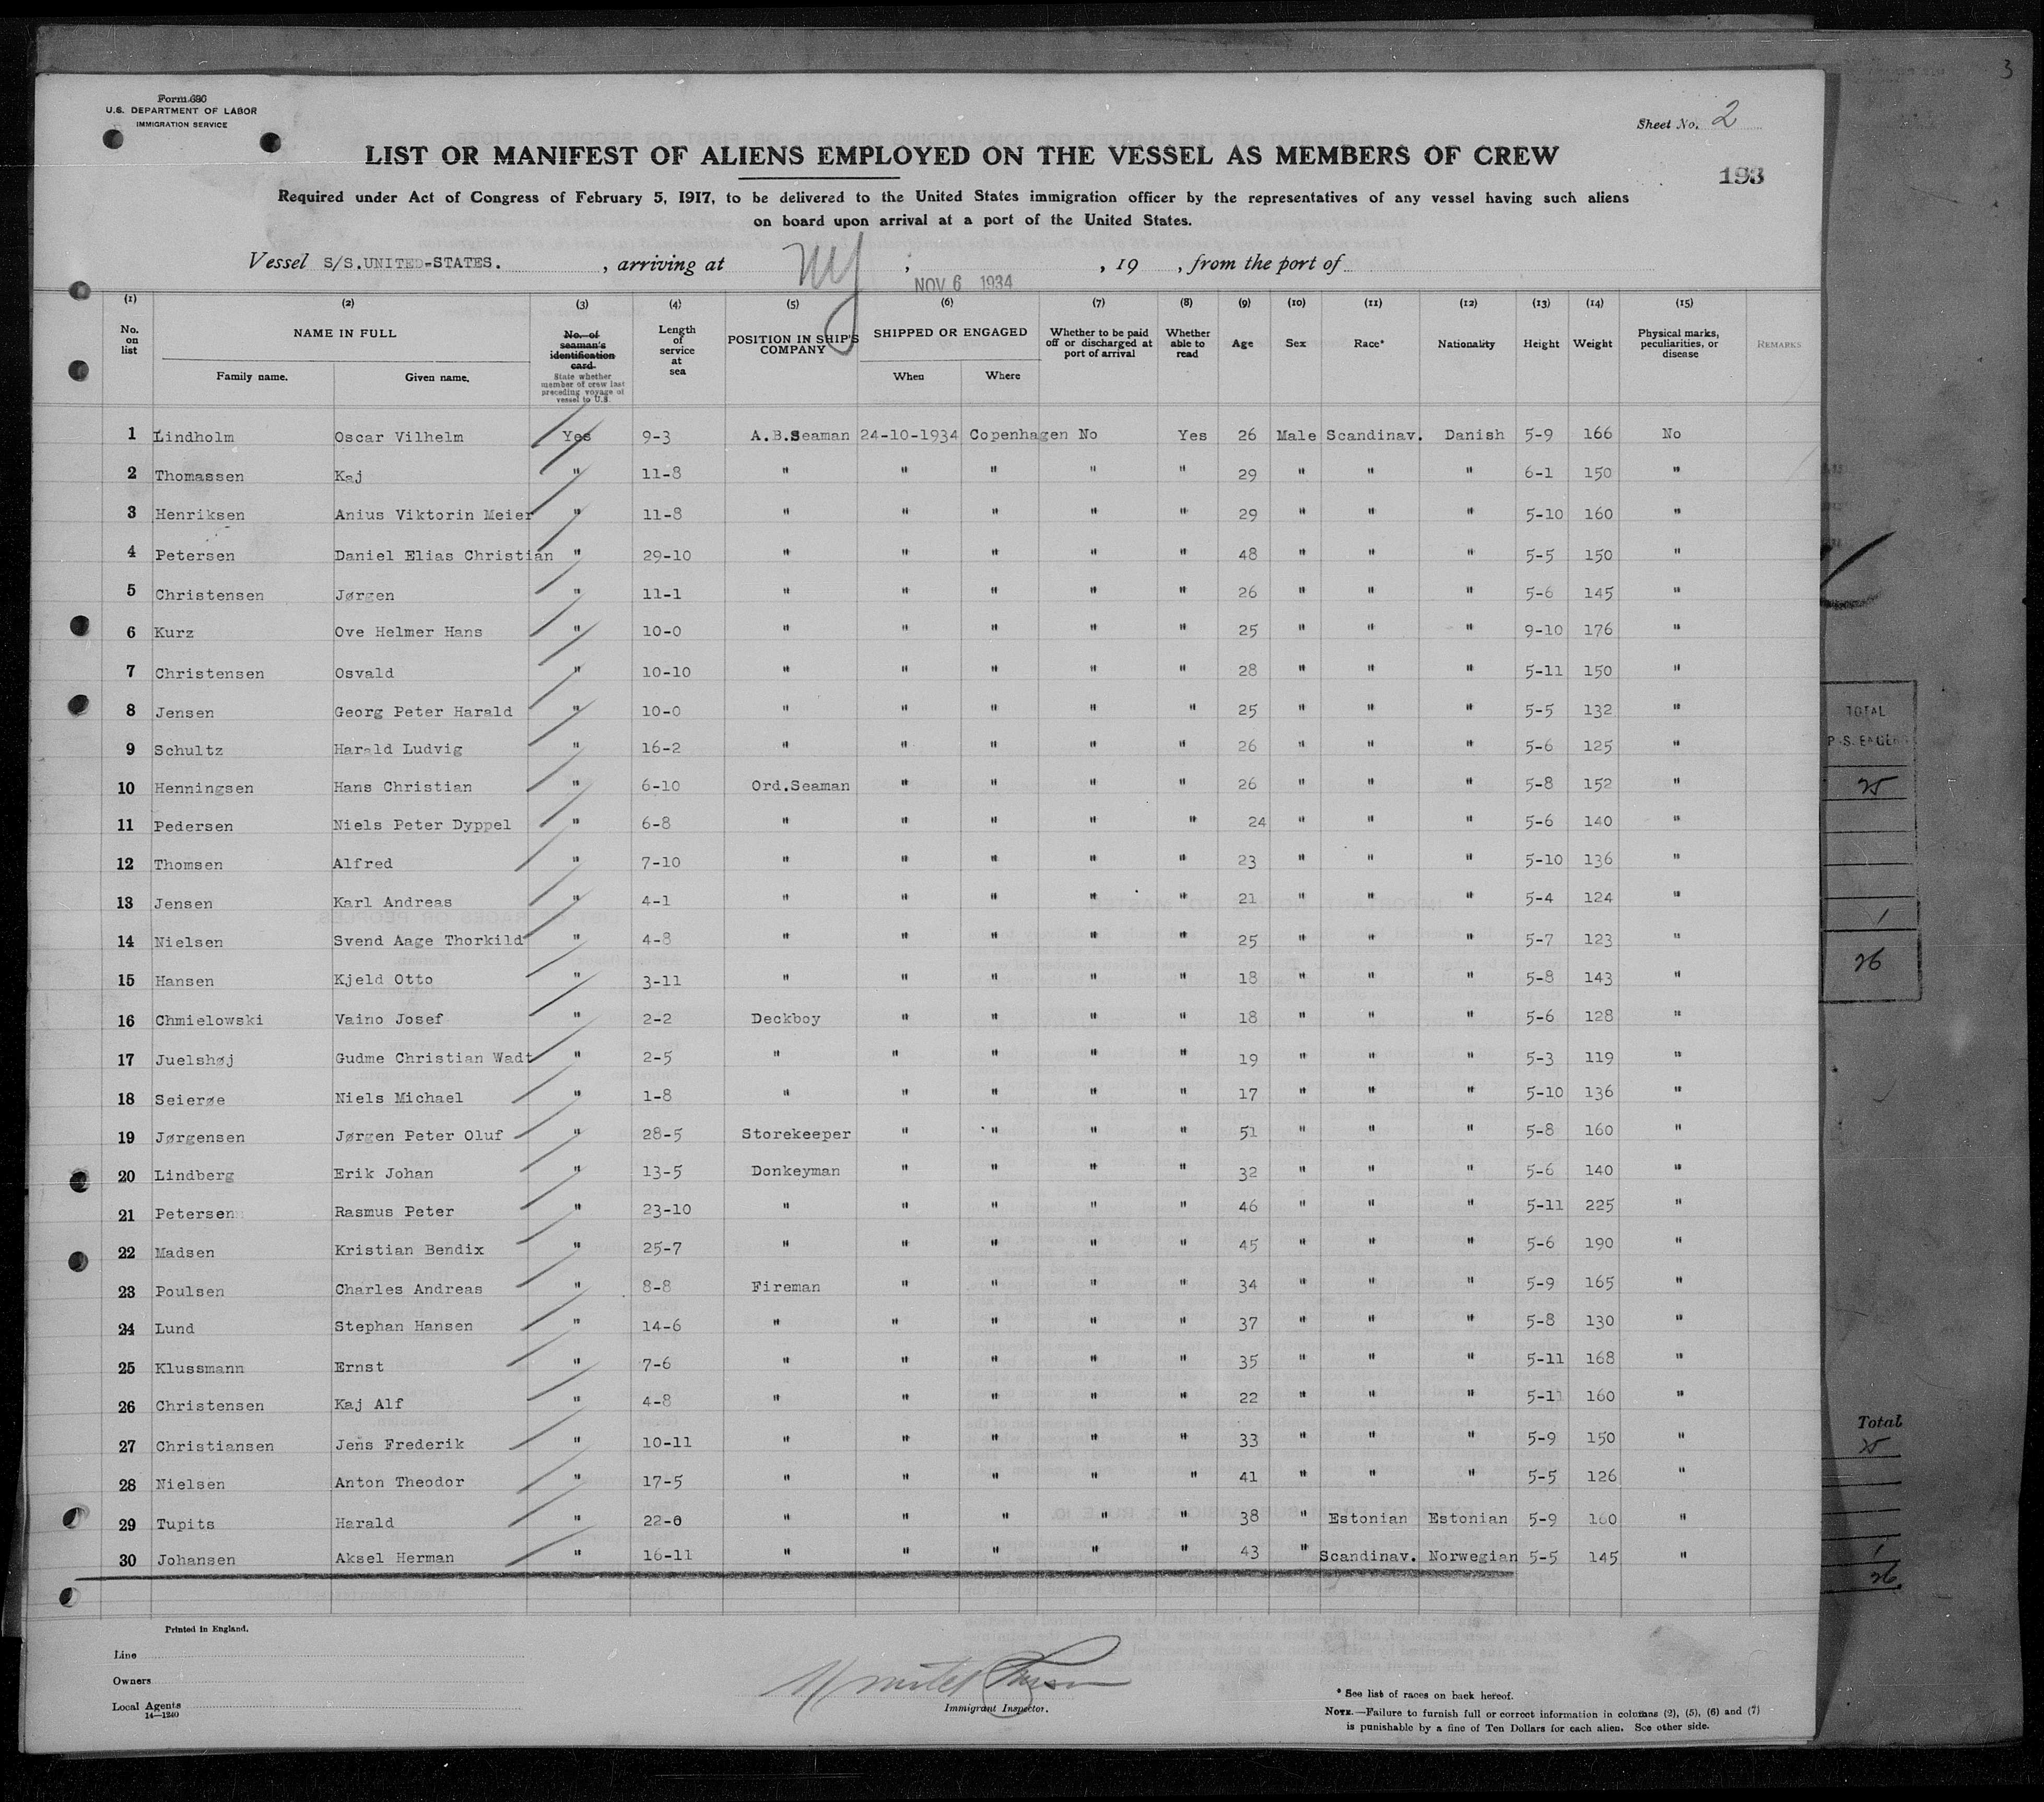 Form 680
U.S. DEPARTMENT OF LABOR
IMMIGRATION SERVICE
3
Sheet No. 2
193
LIST OR MANIFEST OF ALIENS EMPLOYED ON THE VESSEL AS MEMBERS OF CREW
Required under Act of Congress of February 5, 1917, to be delivered to the United States immigration officer by the representatives of any vessel having such aliens
on board upon arrival at a port of the United States.
Vessel S/S.UNITED-STATES. , arriving at NY , NOV 6 1934 , 19 , from the port of
(1) (2) (3) (4) (5) (6) (7) (8) (9) (10) (11) (12) (13) (14) (15)
No. on list NAME IN FULL Family name. Given name. No. of seaman's identification card. State whether member of crew last preceding voyage of vessel to U.S. Length of service at sea POSITION IN SHIP'S COMPANY SHIPPED OR ENGAGED When Where Whether to be paid off or discharged at port of arrival Whether able to read Age Sex Race* Nationality Height Weight Physical marks, peculiarities, or disease REMARKS
1 Lindholm Oscar Vilhelm Yes 9-3 A.B.Seaman 24-10-1934 Copenhagen No Yes 26 Male Scandinav. Danish 5-9 166 No
2 Thomassen Kaj " 11-8 " " " " " 29 " " " 6-1 150 "
3 Henriksen Anius Viktorin Meier " 11-8 " " " " " 29 " " " 5-10 160 "
4 Petersen Daniel Elias Christian " 29-10 " " " " " 48 " " " 5-5 150 "
5 Christensen Jørgen " 11-1 " " " " " 26 " " " 5-6 145 "
6 Kurz Ove Helmer Hans " 10-0 " " " " " 25 " " " 9-10 176 "
7 Christensen Osvald " 10-10 " " " " " 28 " " " 5-11 150 "
8 Jensen Georg Peter Harald " 10-0 " " " " " 25 " " " 5-5 132 "
9 Schultz Harald Ludvig " 16-2 " " " " " 26 " " " 5-6 125 "
10 Henningsen Hans Christian " 6-10 Ord.Seaman " " " " 26 " " " 5-8 152 "
11 Pedersen Niels Peter Dyppel " 6-8 " " " " " 24 " " " 5-6 140 "
12 Thomsen Alfred " 7-10 " " " " " 23 " " " 5-10 136 "
13 Jensen Karl Andreas " 4-1 " " " " " 21 " " " 5-4 124 "
14 Nielsen Svend Aage Thorkild " 4-8 " " " " " 25 " " " 5-7 123 "
15 Hansen Kjeld Otto " 3-11 " " " " " 18 " " " 5-8 143 "
16 Chmielowski Vaino Josef " 2-2 Deckboy " " " " 18 " " " 5-6 128 "
17 Juelshøj Gudme Christian Wadt " 2-5 " " " " " 19 " " " 5-3 119 "
18 Seierøe Niels Michael " 1-8 " " " " " 17 " " " 5-10 136 "
19 Jørgensen Jørgen Peter Oluf " 28-5 Storekeeper " " " " 51 " " " 5-8 160 "
20 Lindberg Erik Johan " 13-5 Donkeyman " " " " 32 " " " 5-6 140 "
21 Petersen Rasmus Peter " 23-10 " " " " " 46 " " " 5-11 225 "
22 Madsen Kristian Bendix " 25-7 " " " " " 45 " " " 5-6 190 "
23 Poulsen Charles Andreas " 8-8 Fireman " " " " 34 " " " 5-9 165 "
24 Lund Stephan Hansen " 14-6 " " " " " 37 " " " 5-8 130 "
25 Klussmann Ernst " 7-6 " " " " " 35 " " " 5-11 168 "
26 Christensen Kaj Alf " 4-8 " " " " " 22 " " " 5-11 160 "
27 Christiansen Jens Frederik " 10-11 " " " " " 33 " " " 5-9 150 "
28 Nielsen Anton Theodor " 17-5 " " " " " 41 " " " 5-5 126 "
29 Tupits Harald " 22-0 " " " " " 38 " Estonian Estonian 5-9 160 "
30 Johansen Aksel Herman " 16-11 " " " " " 43 " Scandinav. Norwegian 5-5 145 "
Printed in England.
Line
Owners
Local Agents
14—1240
Immigrant Inspector.
* See list of races on back hereof.
NOTE.—Failure to furnish full or correct information in columns (2), (5), (6) and (7)
is punishable by a fine of Ten Dollars for each alien. See other side.
TOTAL
PASSENGERS
25
1
26
Total
25
1
26